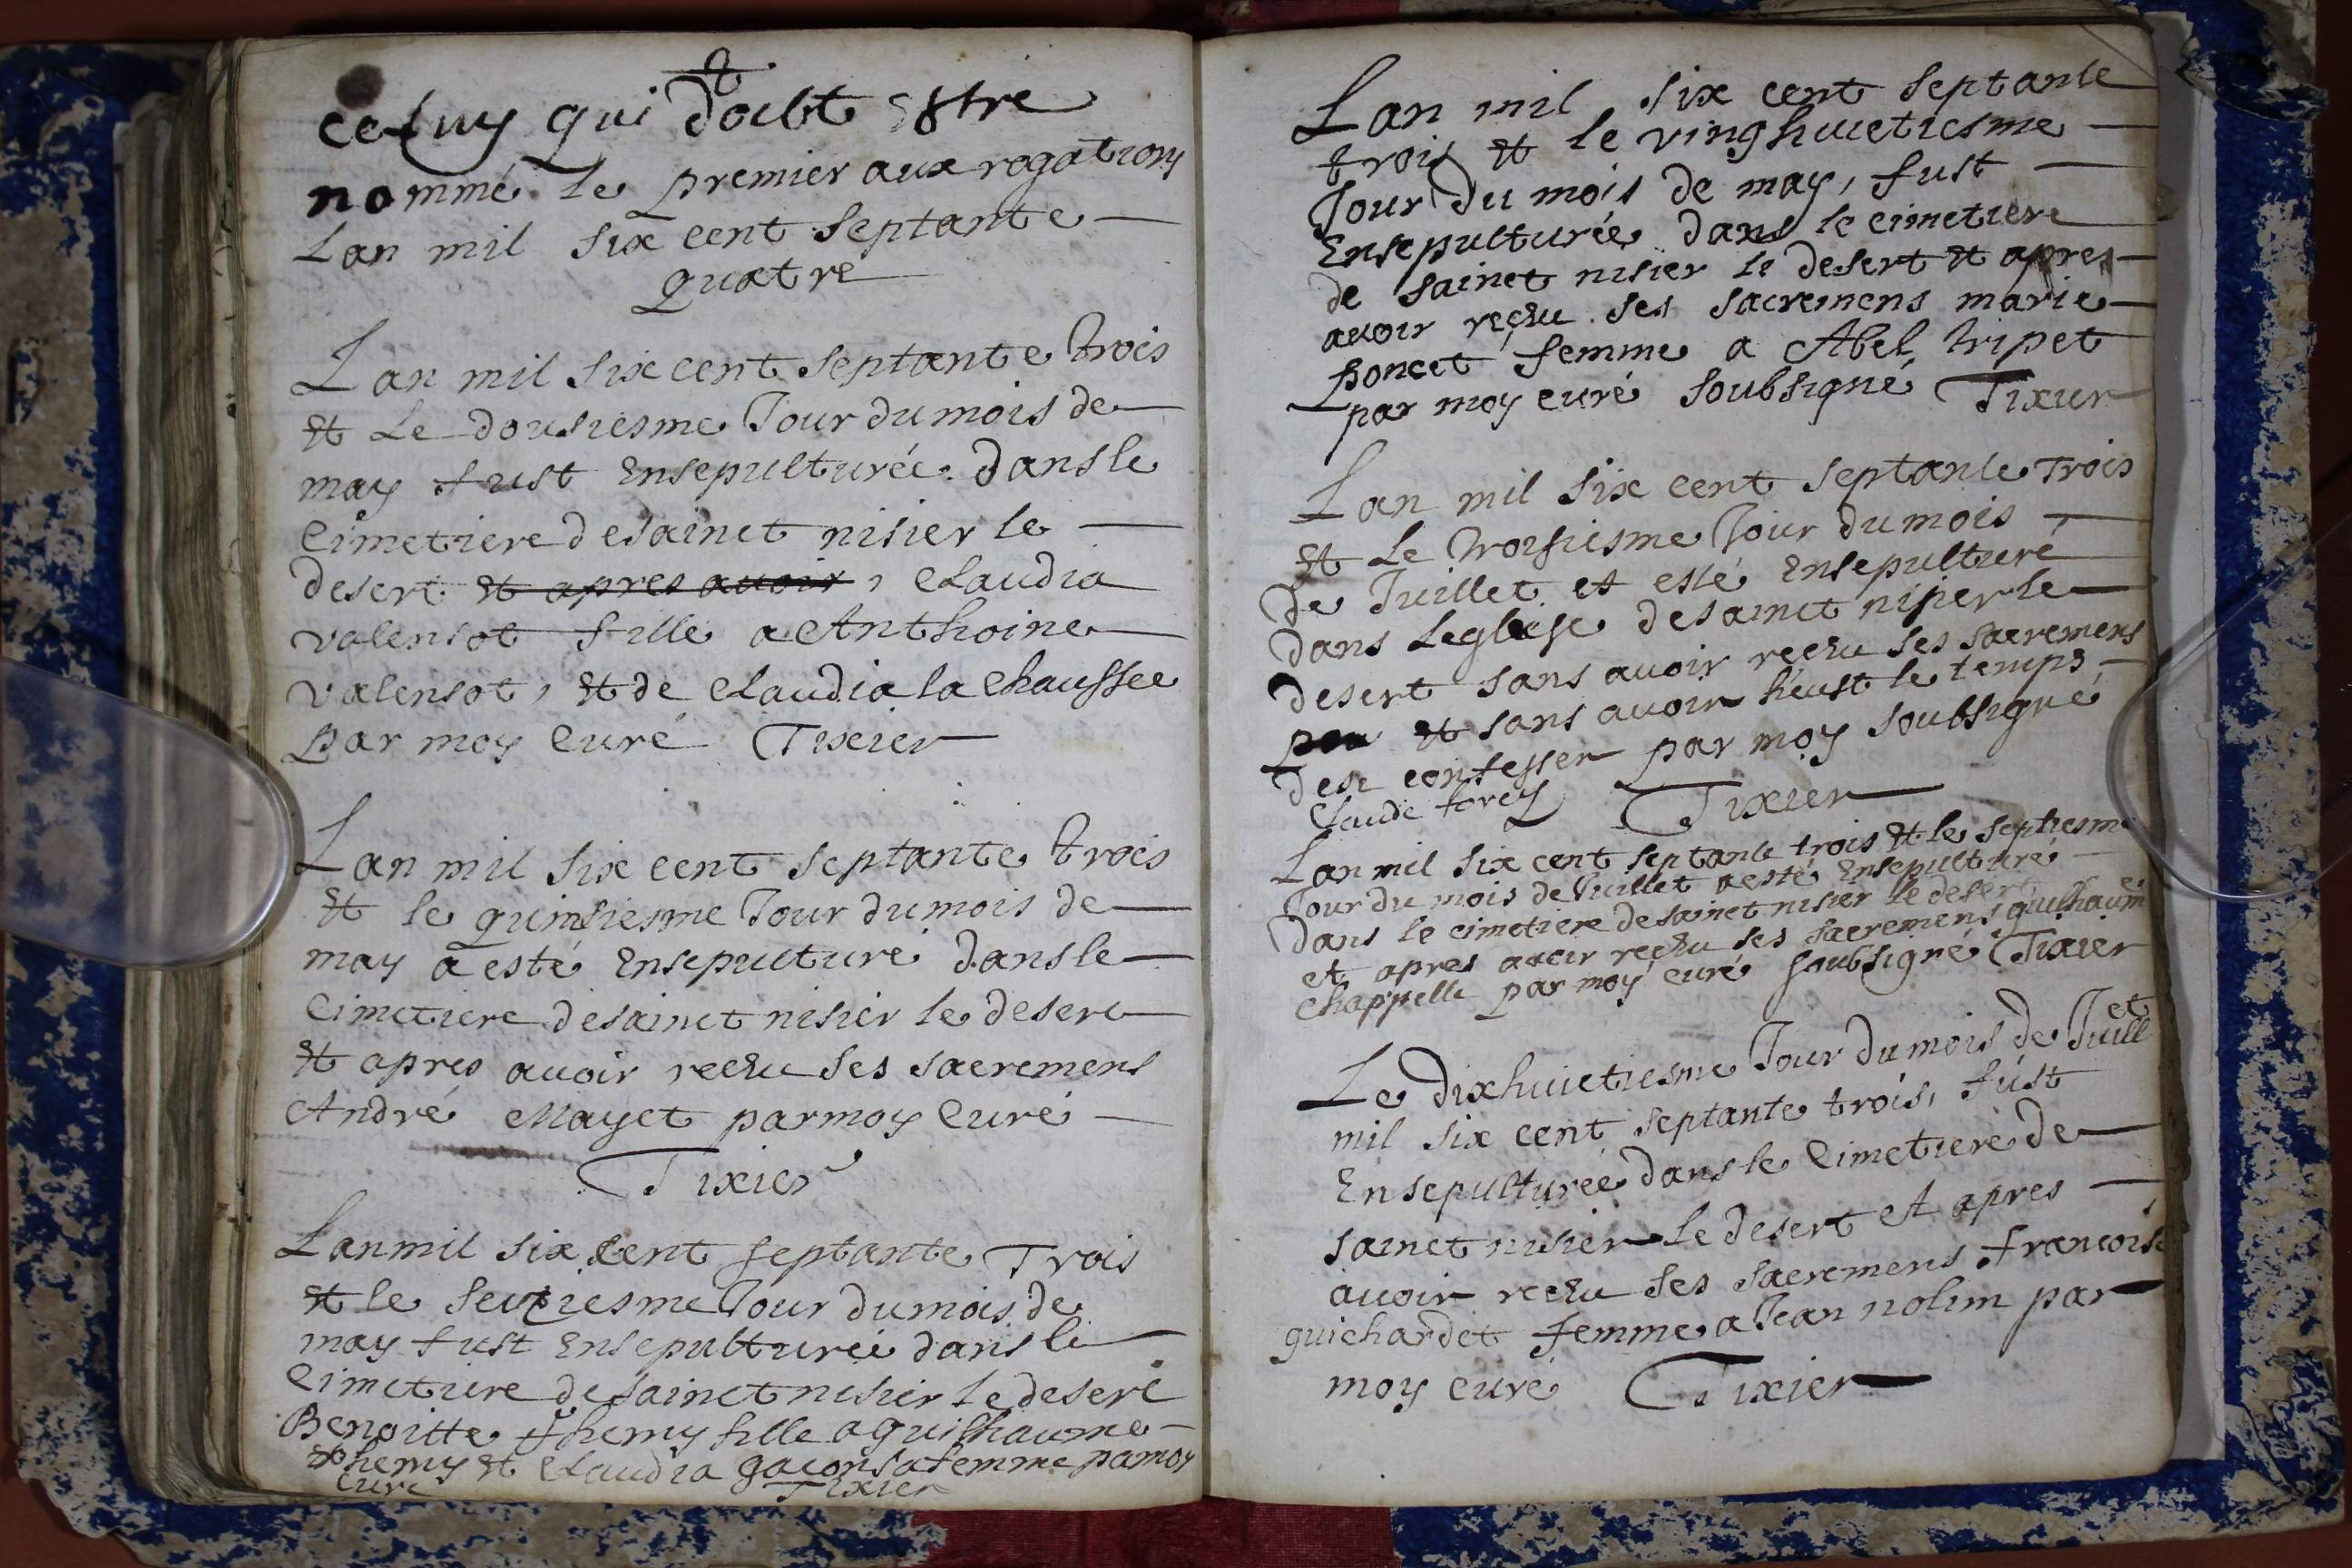 celuy qui doibt estre
nommé le premier aux rogations
Lan mil six cent septante
quatre
Lan mil six cent septante trois
et Le dousiesme Jour du mois de
may fust ensepulturée dans le
cimetiere de sainct nisier le
desert et apres auoir, claudia
valensot fille a Anthoine
valensot, et de claudia la chaussee
par moy curé Tixier
Lan mil six cent septante trois
et le quinsiesme Jour du mois de
may a esté ensepulturé dans le
cimetiere de sainct nisier le desert
et apres auoir reczu ses sacremens
André Mayet par moy curé
Tixier
Lan mil six cent septante Trois
et le seiziesme Jour du mois de
may fust ensepulturée dans le
cimetiere de sainct nisier le desert
Benoitte themy fille a guilhaume
themy et claudia gacon sa femme pa moy
curé Tixier
Lan mil six cent septante
trois et le vinghuictiesme
Jour du mois de may, fust
Ensepulturée dans le cimetiere
de sainct nisier le desert et apres
auoir reczu ses sacremens marie
poncet femme a Abel tripet
par moy curé soubsigné Tixier
Lan mil six cent septante trois
et Le troisiesme Jour du mois
de Juillet et esté ensepulturé
dans Leglise de sainct nisier le
desert sans auoir reczu ses sacremens
et sans auoir heust le temps
dese confesser par moy soubsigné
claude forey Tixier
Lan mil six cent septante trois et le septiesme
Jour du mois de Juillet a esté Ensepulturé
dans le cimetiere de sainct nisier le desert
et apres auoir reczu ses sacremens guilhaume
chappelle par moy curé soubsigné Tixier
Le dixhuictiesme Jour du mois de Juillet
mil six cent septante trois, fust
Ensepulturée dans le cimetiere de
sainct nisier le desert et apres
auoir reczu ses sacremens francoise
guichardet femme a Jean nolim par
moy curé Tixier